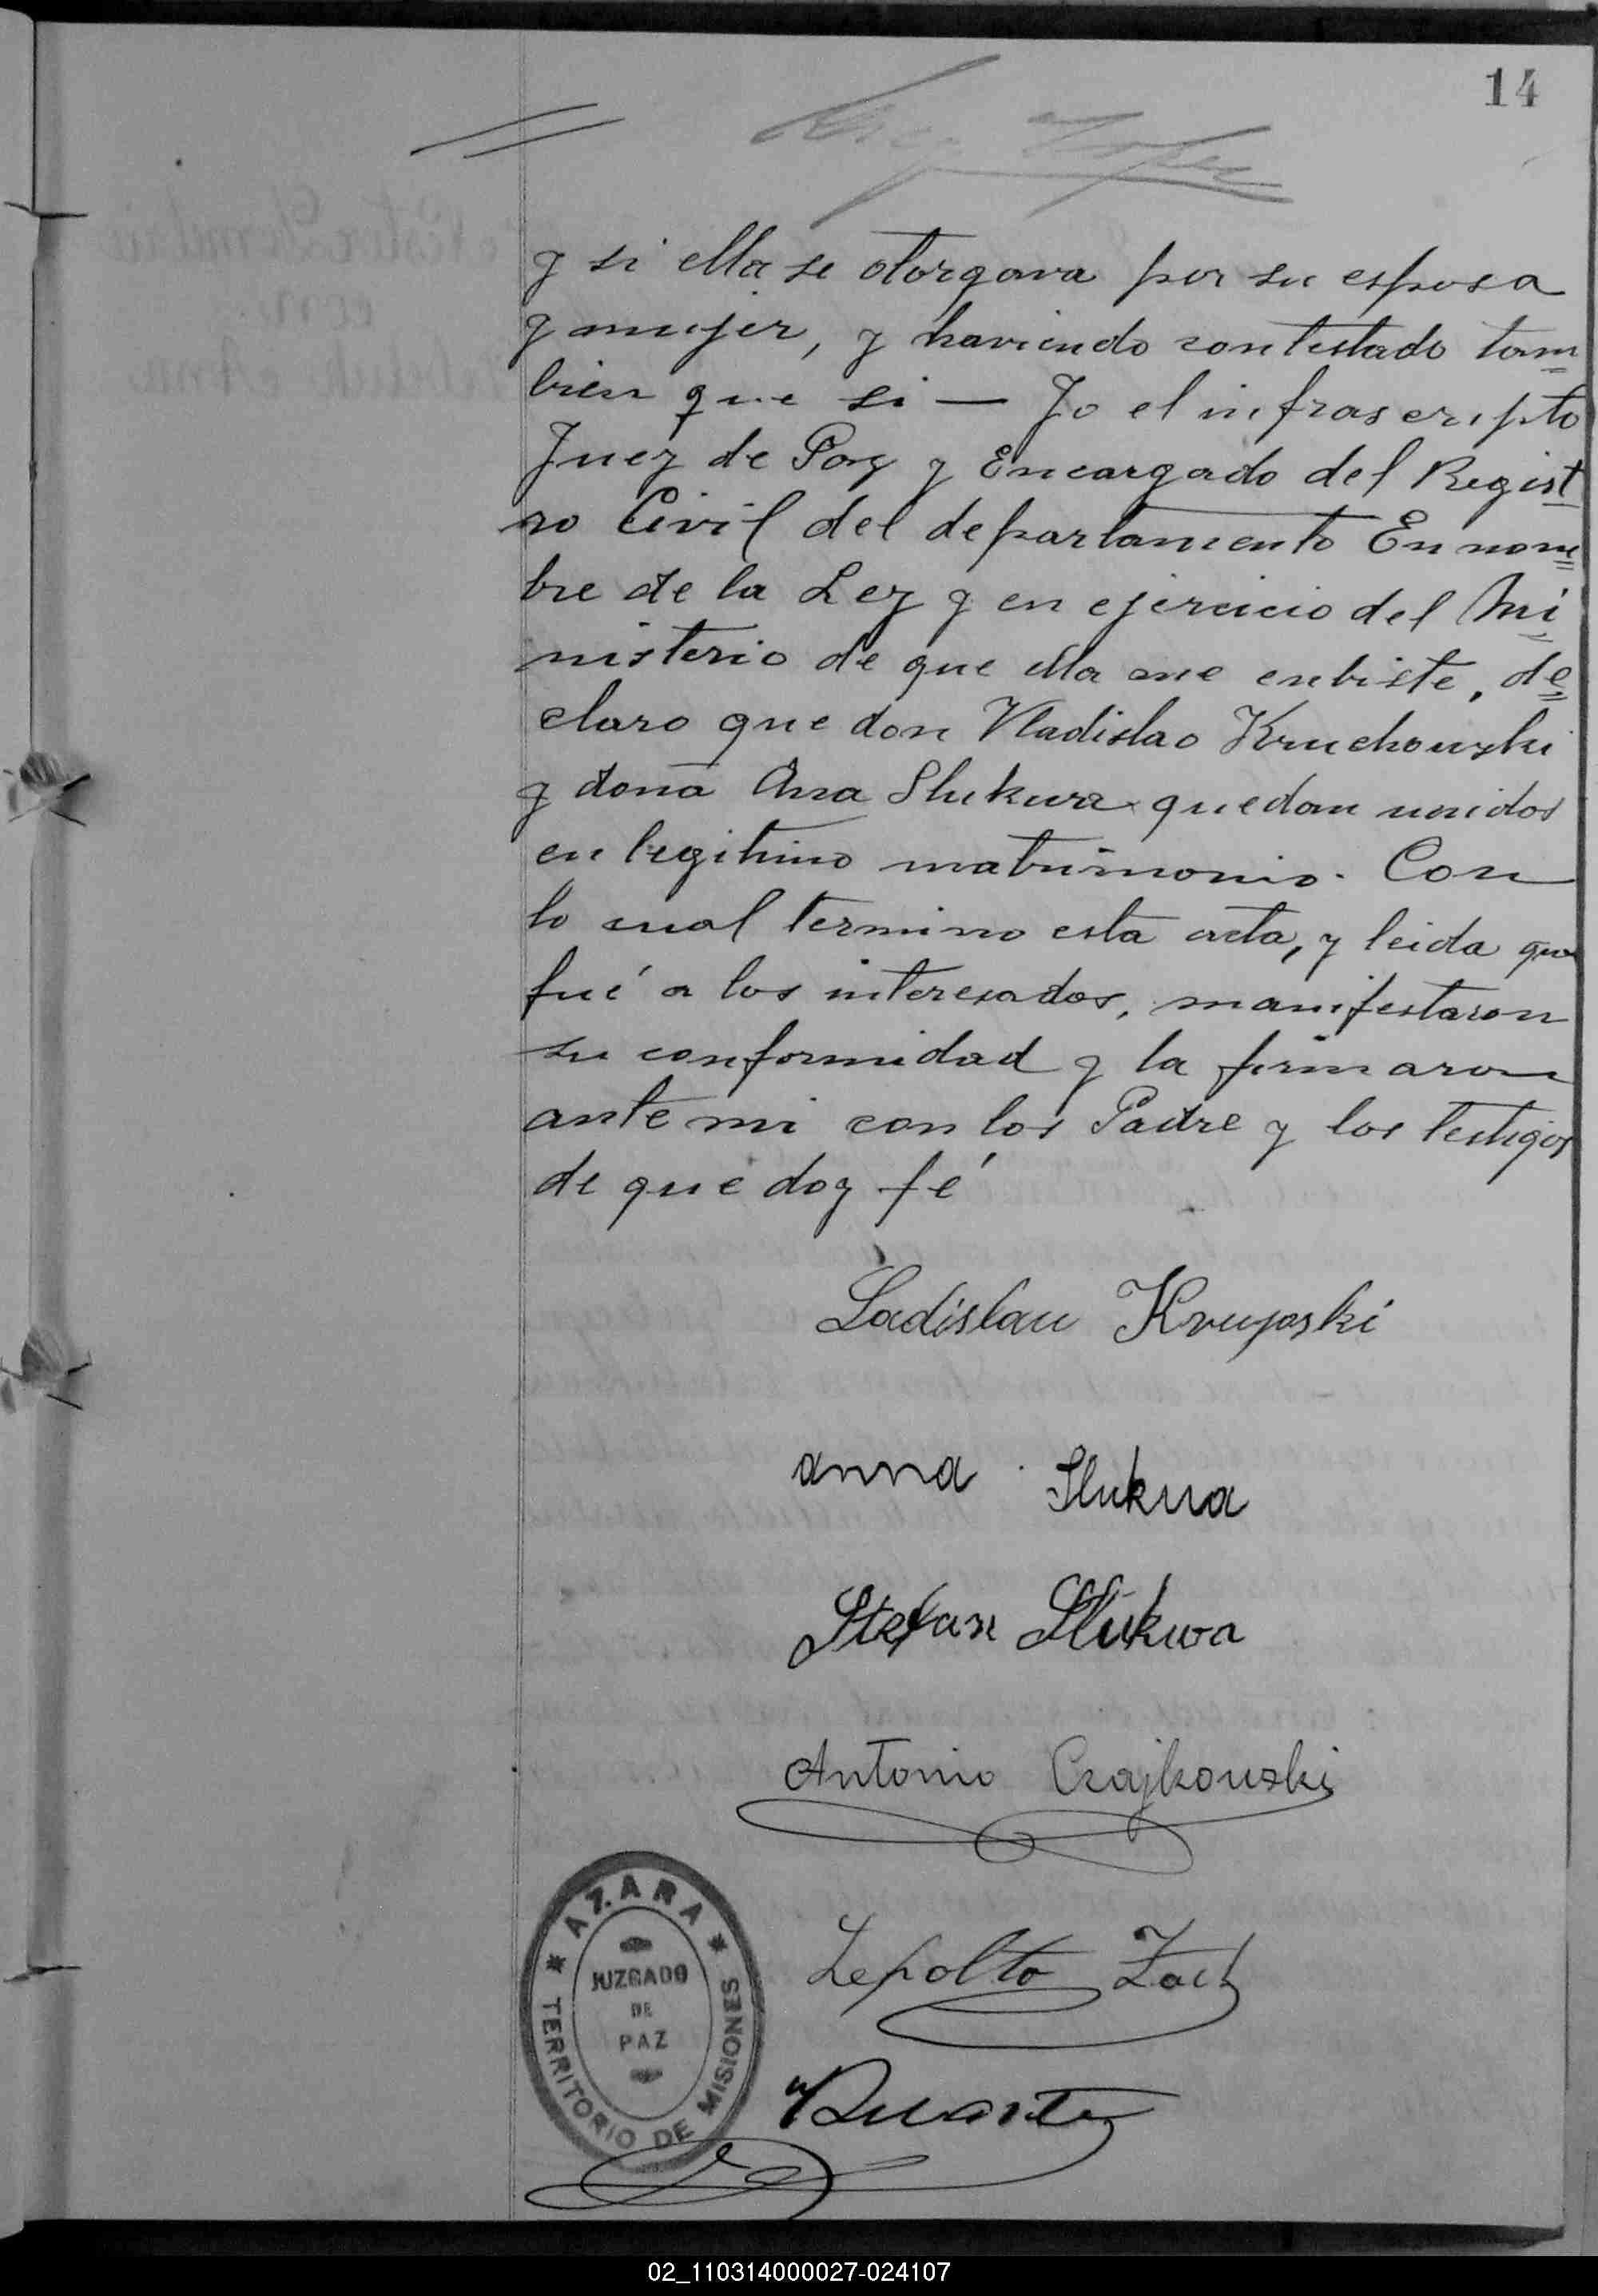 14
y si ella se otorgava por su esposa
y mujer, y haviendo contestado tam
bien que si — Jo el infrascripto
Juez de Paz y Encargado del Regist
ro Civil del departamento En nom
bre de la Ley y en ejercicio del Mi
nisterio de que ella me enbiste, de
claro que don Vladislao Kruchouski
y dona Ana Slukura quedan unidos
en legitimo matrimonio. Con
lo cual termino esta acta, y leida que
fué a los interesados, manifestaron
su conformidad y la firmaron
ante mi con los Padre y los testigos
de que doy fé
Ladislau Kruyoski
anna Slukua
Stefan Slukwa
Antonio Czajkouski
AZARA
JUZGADO
DE
PAZ
TERRITORIO DE MISIONES
Lepolto Zach
Duarte
02_110314000027-024107